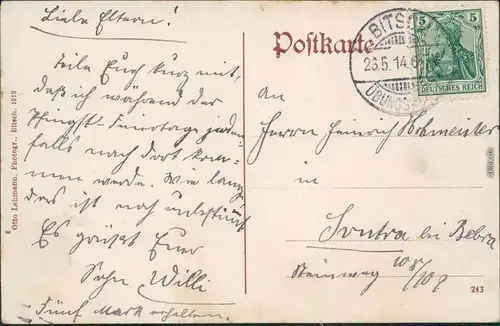 Liebe Eltern!
Teile Euch kurz mit,
daß ich während der
Pfingst-Feiertage jeden-
falls nach dort kom-
men werde. Wie lange
das ist noch unbestimmt
Es grüßt Euer
Sohn Willi
Fünf Mark erhalten.
Otto Lehmann, Photogr., Bitsch. 1913
Postkarte
BITSCH
26.5.14.6
ÜBUNGS
5 5
DEUTSCHES REICH
An
Herrn Heinrich Hofmeister
in
Sontra bei Bebra
Steinweg 108/109
243